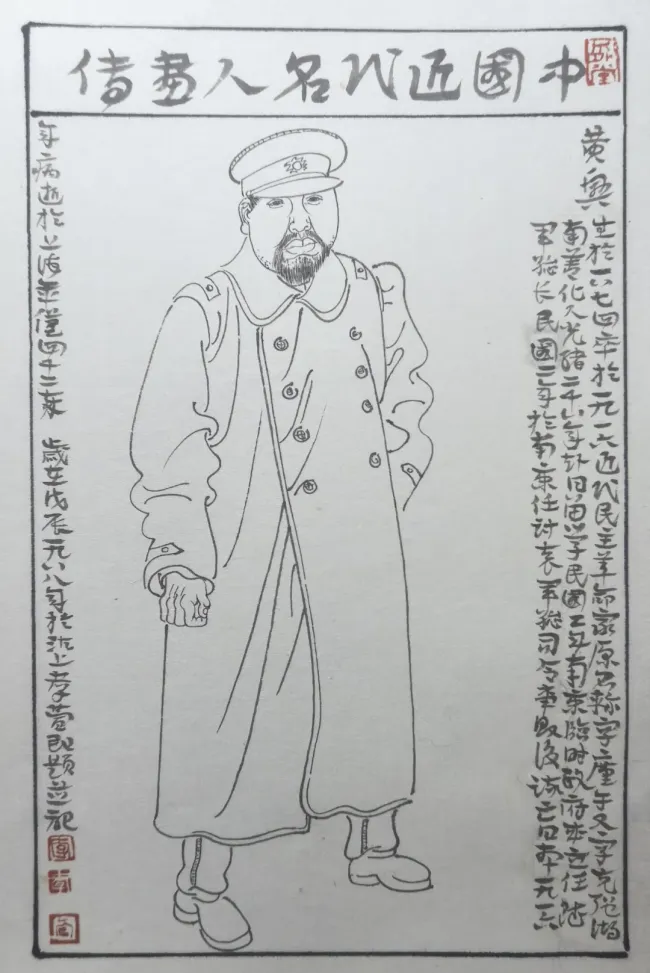 中國近代名人畫传
黄興
生於一八七四卒於一九一六近代民主革命家原名軫字廑午又字克强湖
南善化人光绪二十八年赴日留学民國元年南京臨時政府成立任陸
軍総长民國二年於南京任討袁軍総司令事敗後流亡日本一九一六
年病逝於上海年僅四十二歲 歲在戊辰一九八八年於沪上孝萱题並記